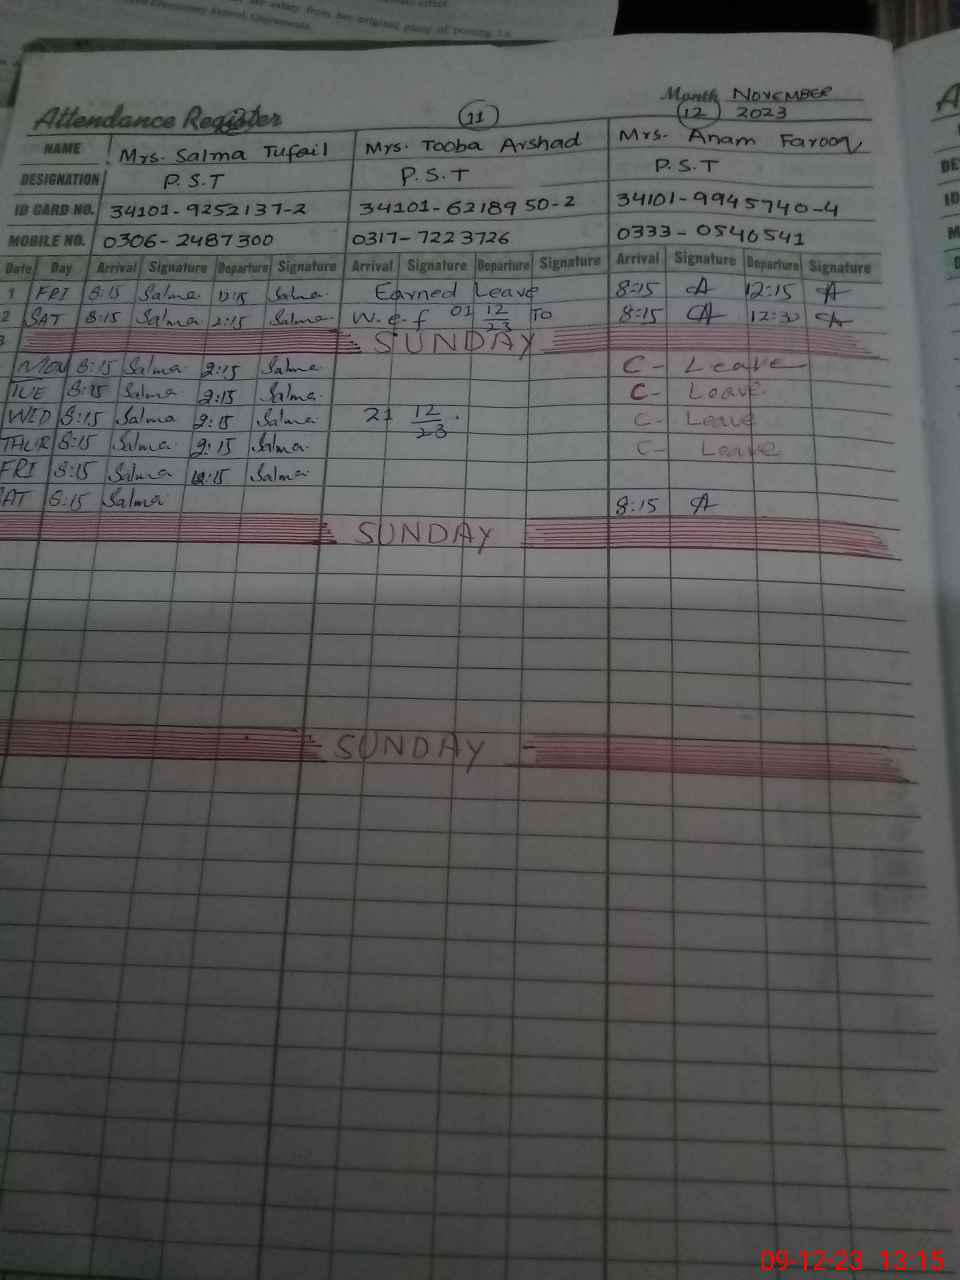 salary from her original place of posting i.e
Elementary School, Gujranwala.
Month NOVEMBER
Attendance Register 11 12 2023
NAME Mrs. Salma Tufail Mrs. Tooba Arshad Mrs. Anam Farooq
DESIGNATION P.S.T P.S.T P.S.T
ID CARD NO. 34101-9252137-2 34101-6218950-2 34101-9945740-4
MOBILE NO. 0306-2487300 0317-7223726 0333-0540541
Date Day Arrival Signature Departure Signature Arrival Signature Departure Signature Arrival Signature Departure Signature
1 FRI 8:15 Salma 12:15 Salma Earned Leave 8:15 A 12:15 A
2 SAT 8:15 Salma 2:15 Salma W.e.f 01 12/23 TO 8:15 A 12:30 A
3 SUNDAY
MON 8:15 Salma 2:15 Salma C- Leave
TUE 8:15 Salma 2:15 Salma C- Leave
WED 8:15 Salma 2:15 Salma 21 12/23. C- Leave
THUR 8:15 Salma 2:15 Salma C- Leave
FRI 8:15 Salma 12:15 Salma
SAT 8:15 Salma 8:15 A
SUNDAY
SUNDAY
09-12-23 13:15